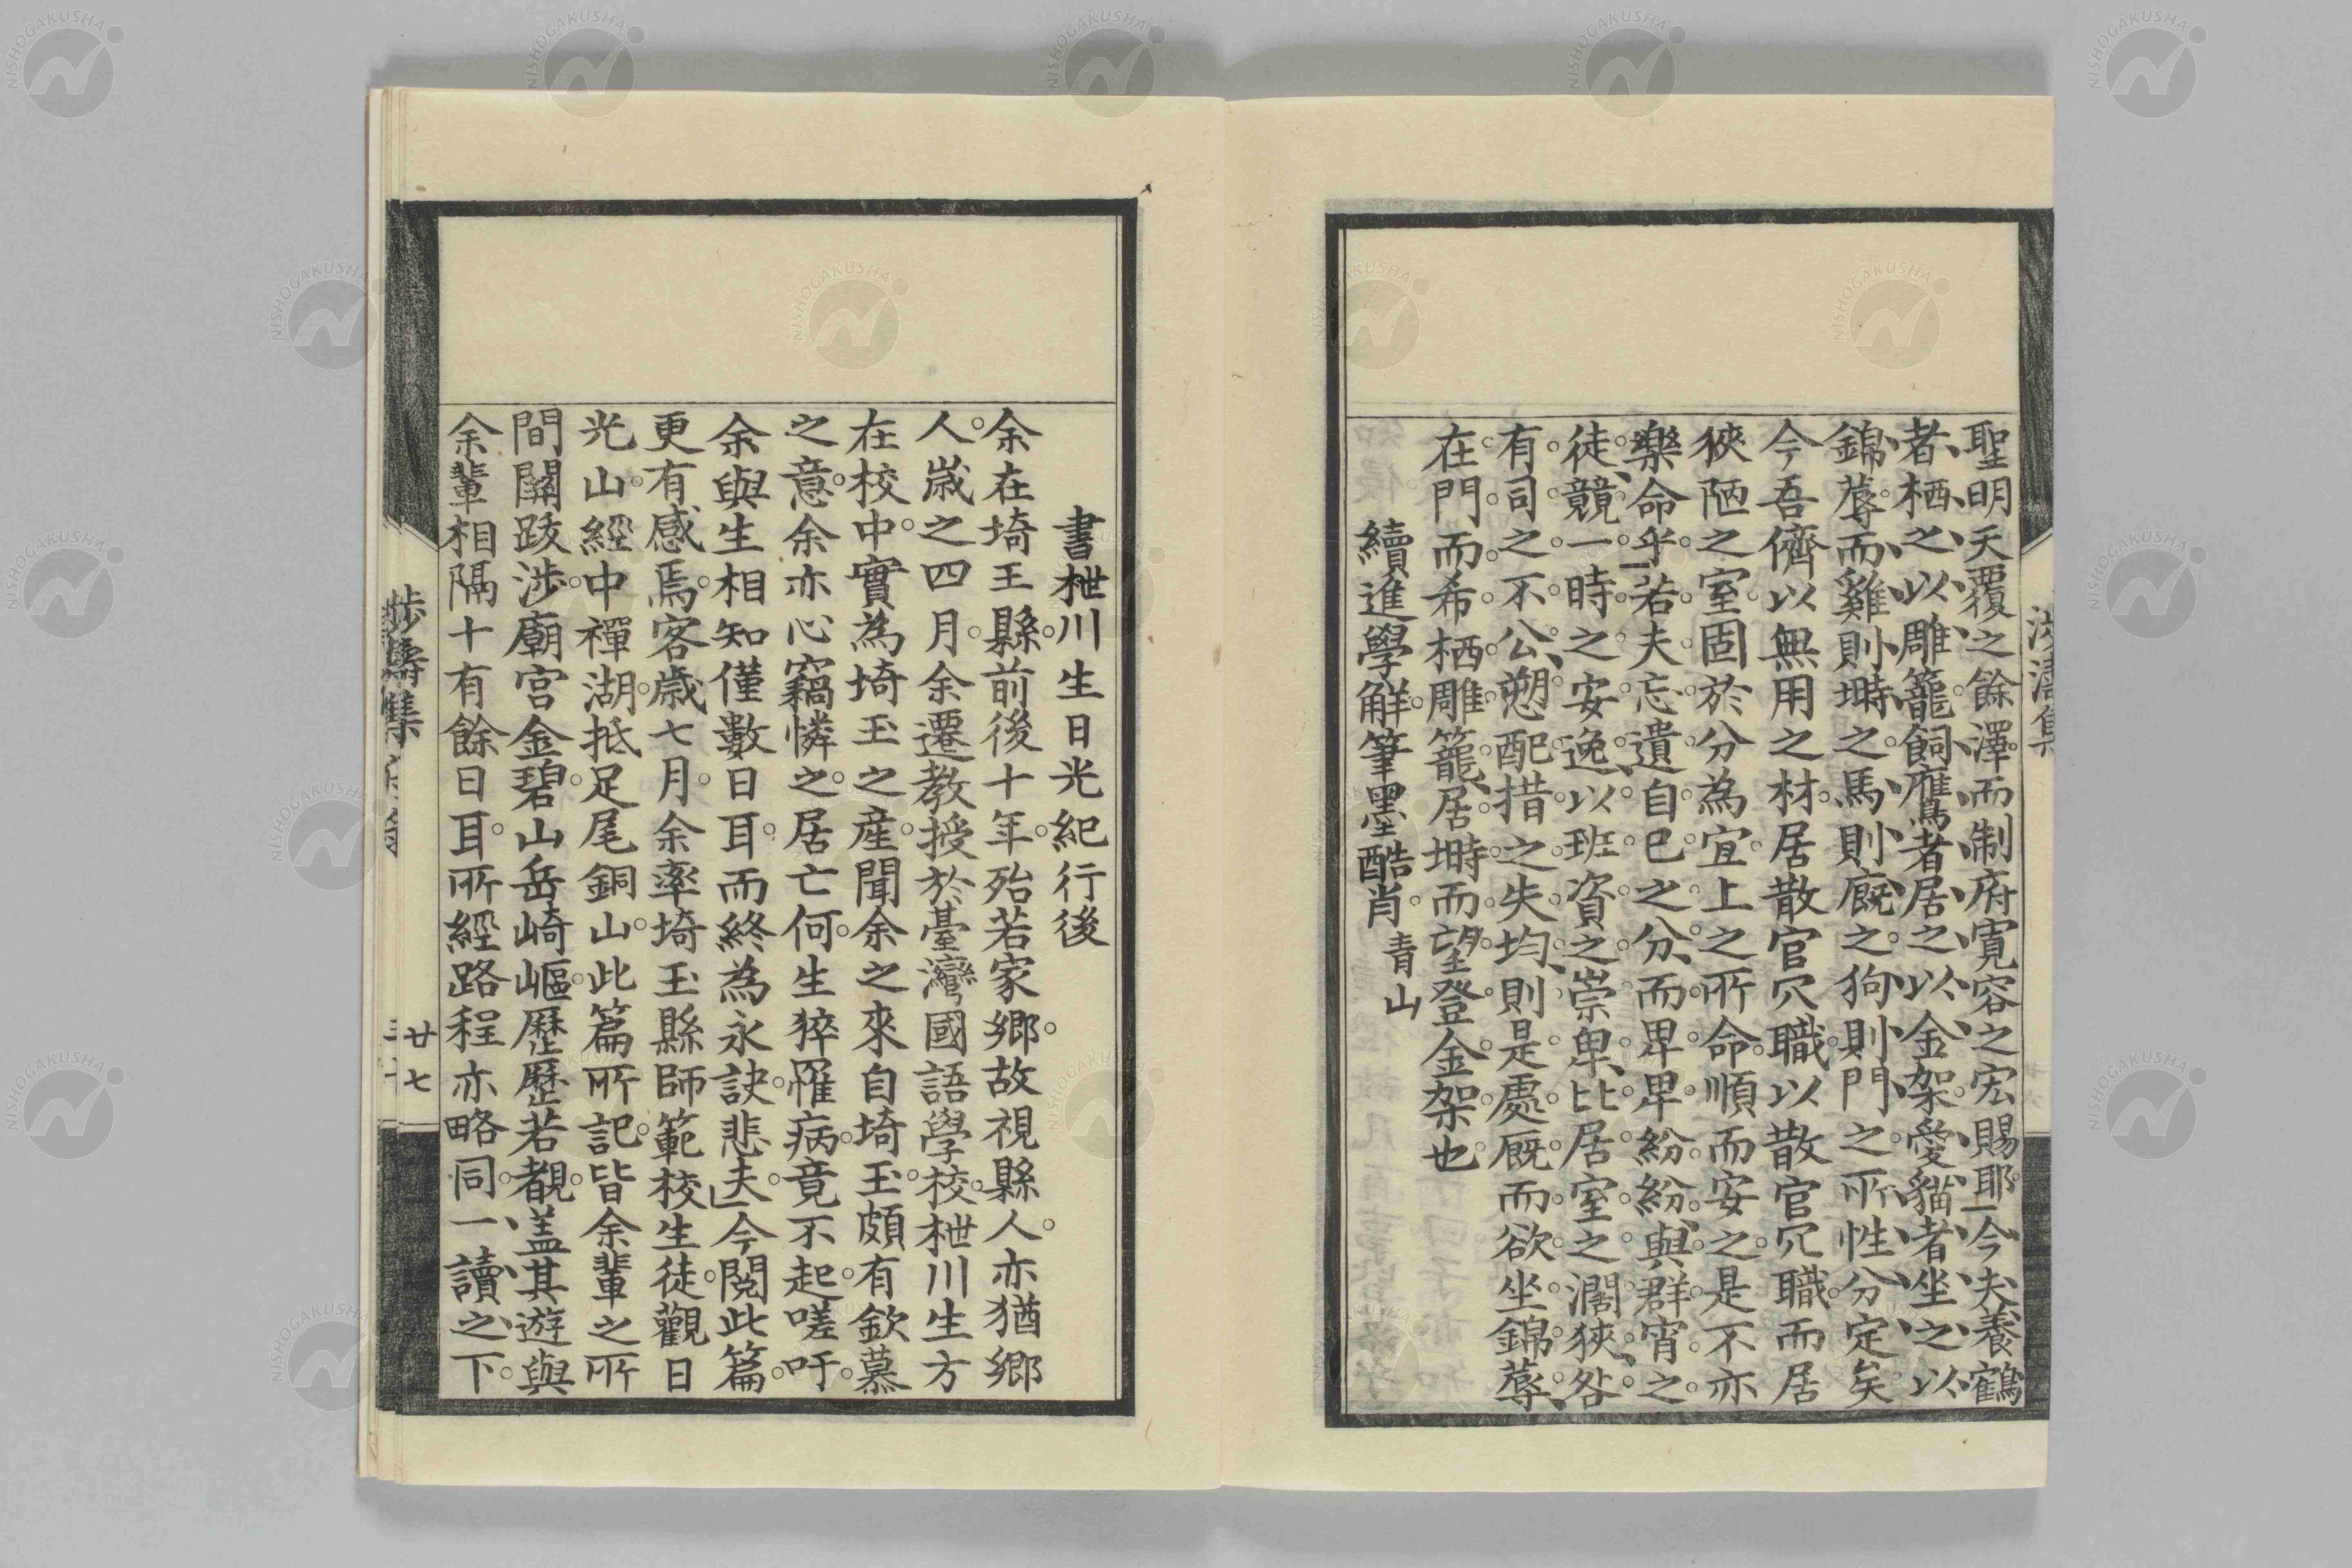 聖明天覆之餘澤而制府寛容之宏賜耶今夫養鶴
者栖之以雕籠飼鷹者居之以金架愛貓者坐之以
錦蓐而雞則塒之馬則廐之狗則門之所性分定矣
今吾儕以無用之材居散官冗職以散官冗職而居
狹陋之室固於分為宜上之所命順而安之是不亦
樂命乎若夫忘遺自己之分而卑卑紛紛與群宵之
徒競一時之安逸以班資之崇卑比居室之濶狹咎
有司之不公愬配措之失均則是處厩而欲坐錦蓐
在門而希栖雕籠居塒而望登金架也
續進學解筆墨酷肖青山
書枻川生日光紀行後
余在埼玉縣前後十年殆若家鄉故視縣人亦猶鄉
人歲之四月余遷教授於臺灣國語學校枻川生方
在校中實為埼玉之産聞余之來自埼玉頗有欽慕
之意余亦心竊憐之居亡何生猝罹病竟不起嗟吁
余與生相知僅數日耳而終為永訣悲夫今閱此篇
更有感焉客歲七月余率埼玉縣師範校生徒觀日
光山經中禪湖抵足尾銅山此篇所記皆余輩之所
間關跋涉廟宮金碧山岳崎嶇歷歷若覩盖其遊與
余輩相隔十有餘日耳所經路程亦略同一讀之下
廿七
NISHOGAKUSHA